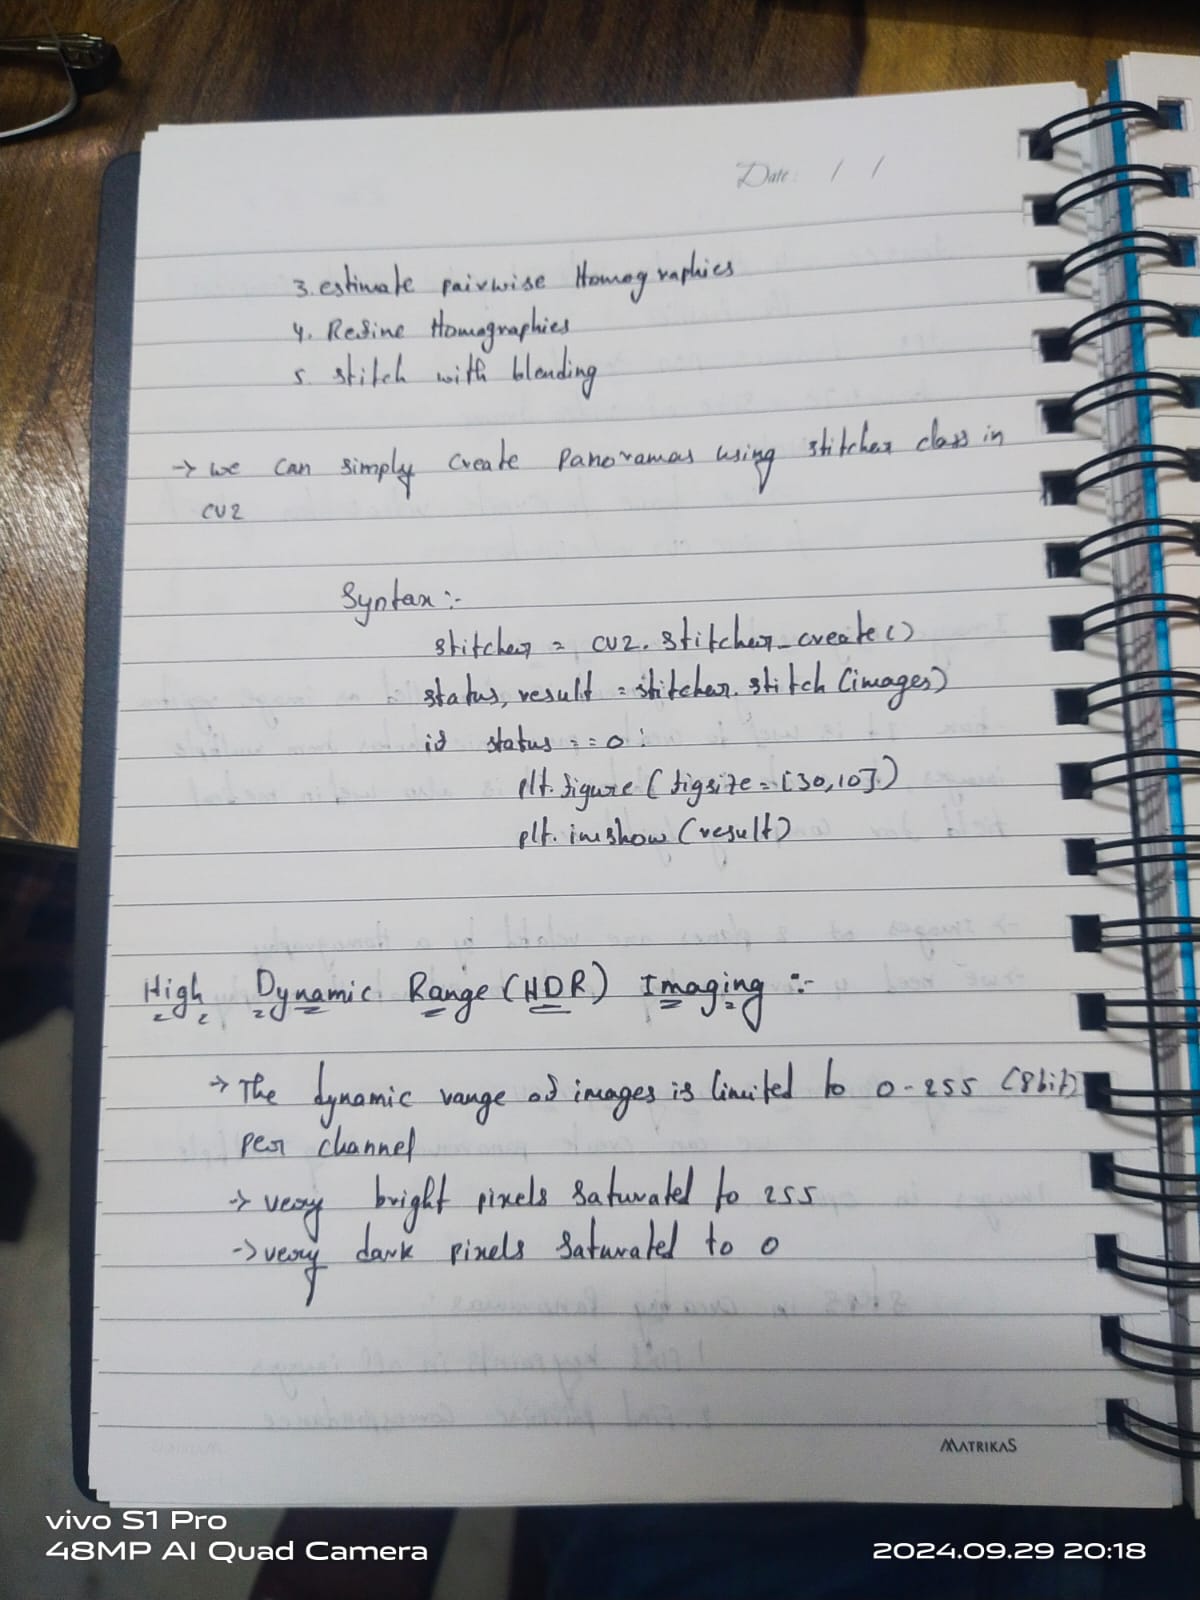 Date: / /
3. estimate pairwise Homographies
4. Refine Homographies
5. stitch with blending
→ we can simply create panoramas using stitcher class in
cv2
Syntax :-
stitcher = cv2. stitcher_create()
status, result = stitcher. stitch (images)
if status == 0 :
plt. figure ( figsize = [30,10] )
plt. imshow (result)
High Dynamic Range (HDR) Imaging :-
→ The dynamic range of images is limited to 0-255 (8bit)
per channel
→ very bright pixels saturated to 255
→ very dark pixels saturated to 0
MATRIKAS
vivo S1 Pro
48MP AI Quad Camera
2024.09.29 20:18